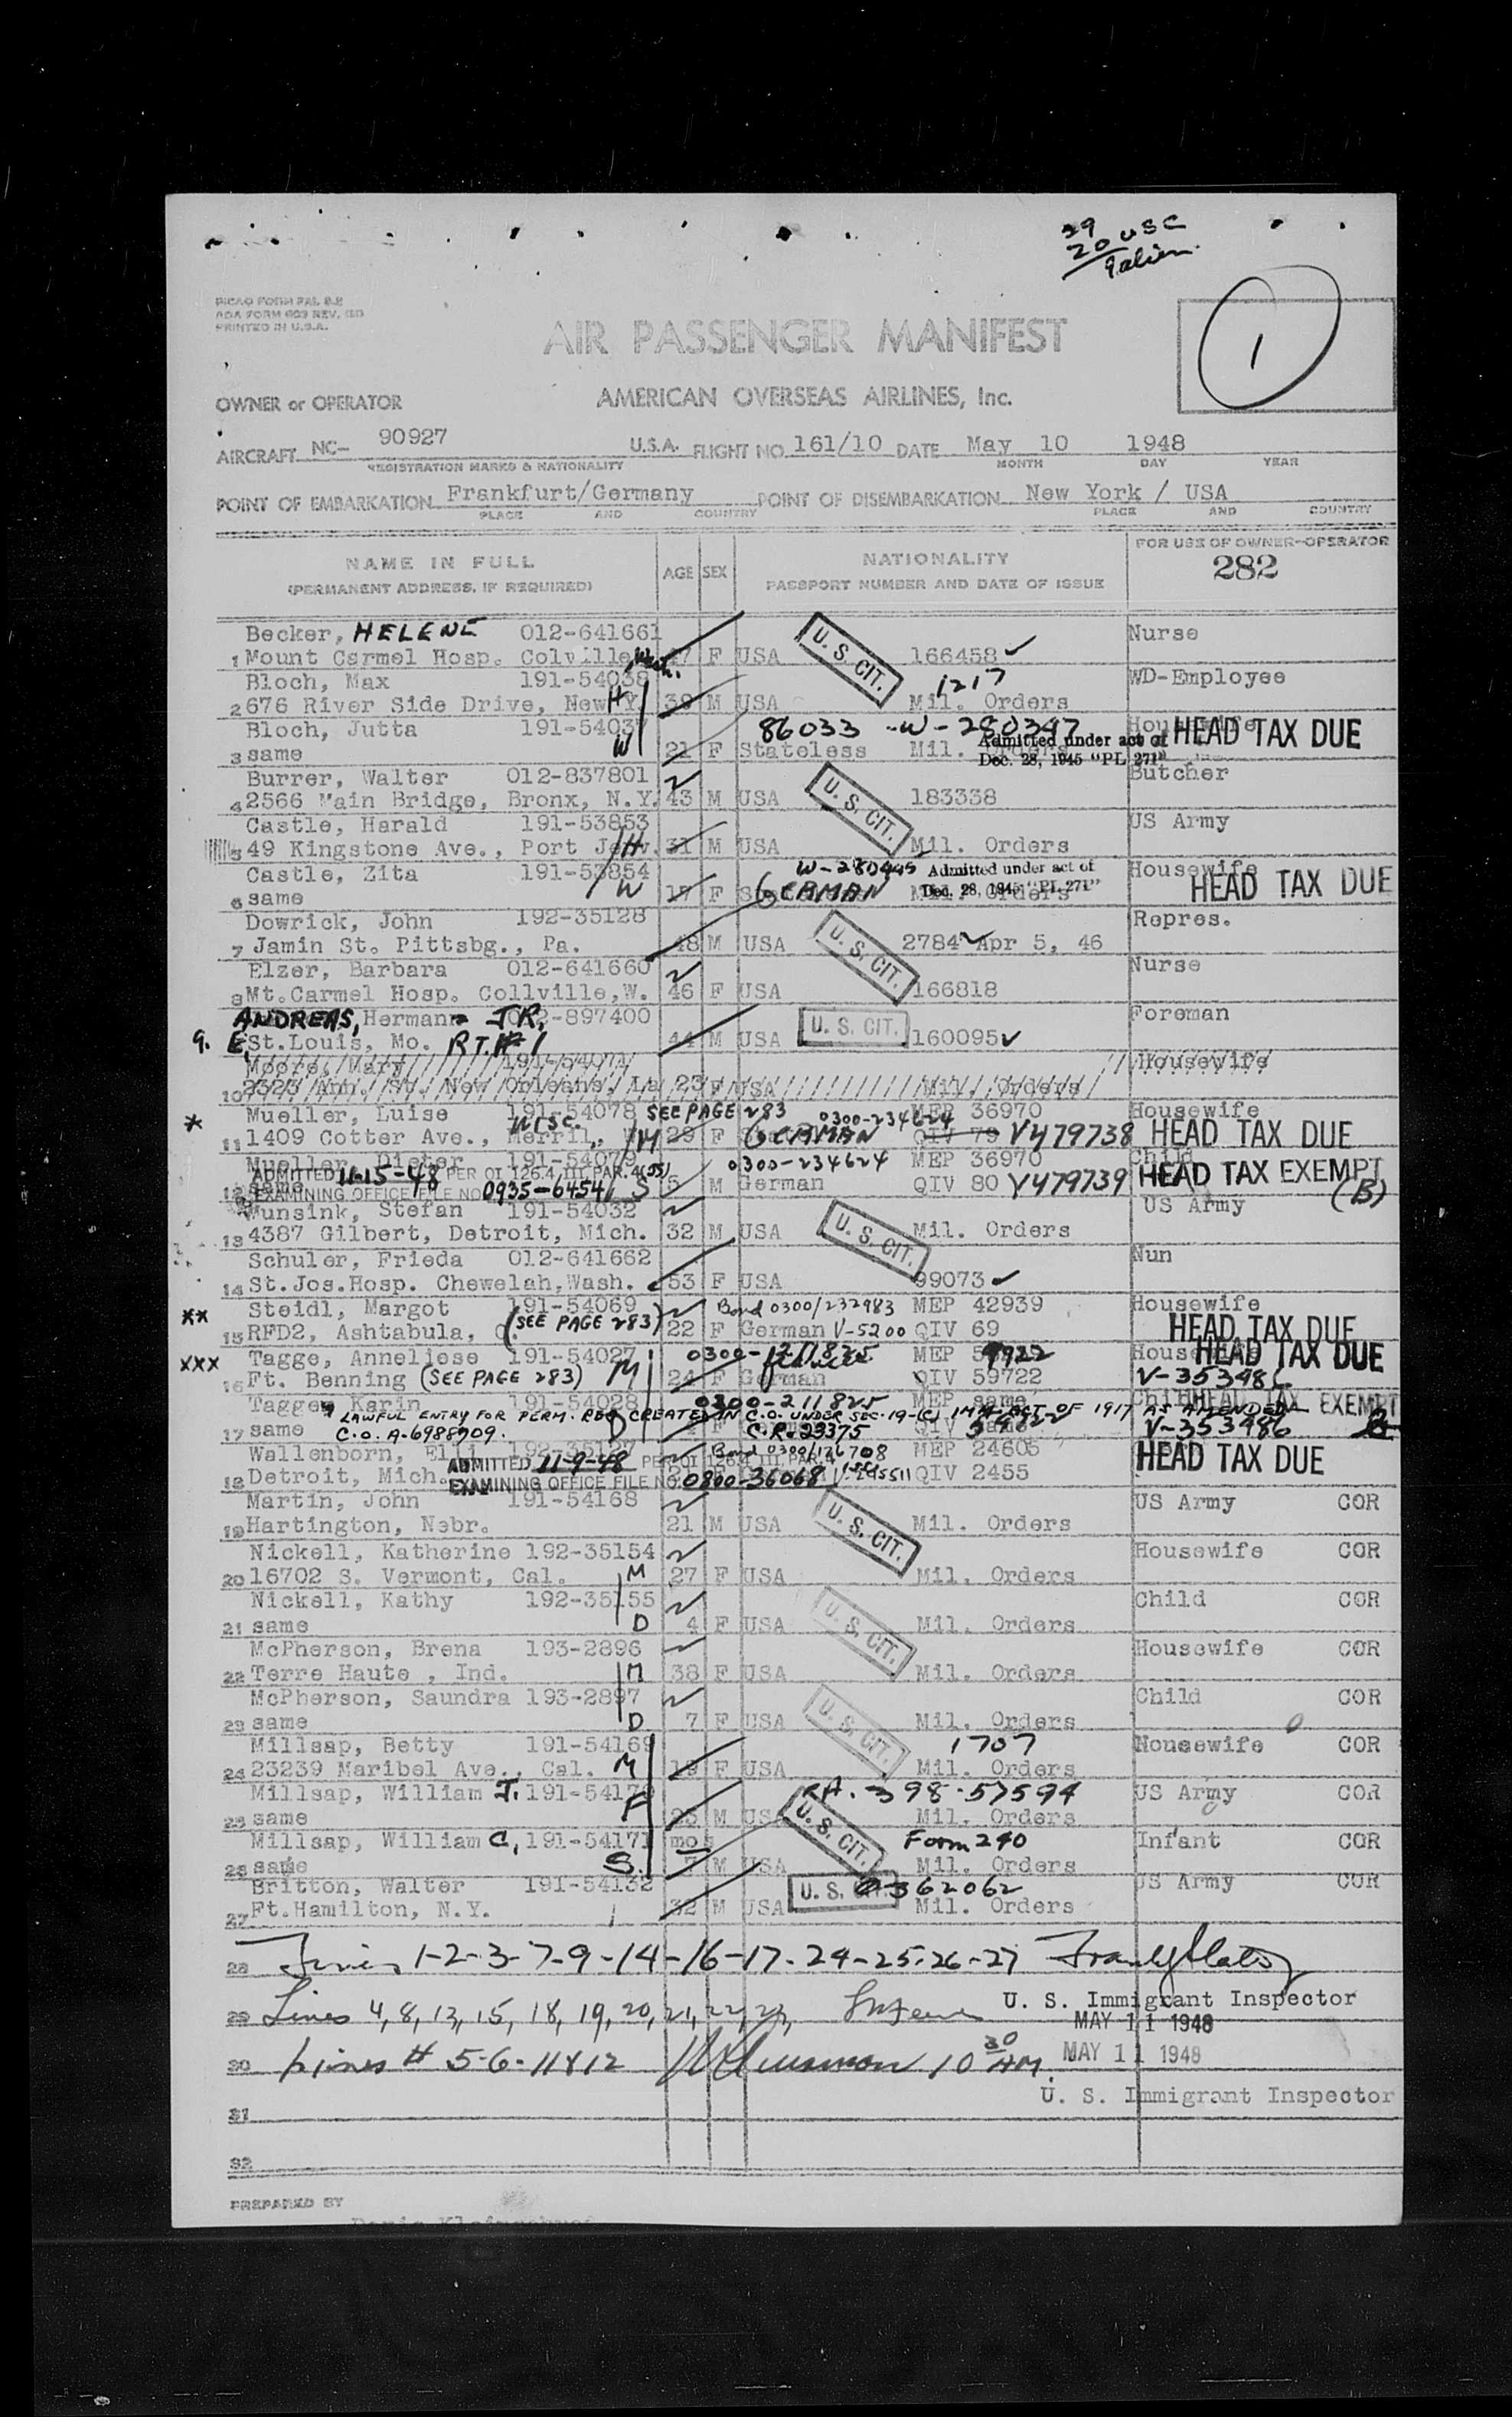 29
20 USC
9 alien
PICAO FORM PAL 8-2
AOA FORM 609 REV.
PRINTED IN U.S.A.
AIR PASSENGER MANIFEST
1
OWNER or OPERATOR AMERICAN OVERSEAS AIRLINES, Inc.
AIRCRAFT NC- 90927 U.S.A. FLIGHT NO. 161/10 DATE May 10 1948
REGISTRATION MARKS & NATIONALITY MONTH DAY YEAR
POINT OF EMBARKATION Frankfurt/Germany POINT OF DISEMBARKATION New York / USA
PLACE AND COUNTRY PLACE AND COUNTRY
NAME IN FULL AGE SEX NATIONALITY FOR USE OF OWNER-OPERATOR
(PERMANENT ADDRESS, IF REQUIRED) PASSPORT NUMBER AND DATE OF ISSUE 282
Becker, HELENE 012-641661 U. S. CIT. Nurse
1 Mount Carmel Hosp. Colville, Wash. 47 F USA 166458
Bloch, Max 191-54038 1217 WD-Employee
2 676 River Side Drive, New Y. H 39 M USA Mil. Orders
Bloch, Jutta 191-54037 86033 -W-280347 Housewife HEAD TAX DUE
3 same W 21 F Stateless Mil. Orders Admitted under act of Dec. 28, 1945 "PL 271"
Burrer, Walter 012-837801 U. S. CIT. Butcher
4 2566 Main Bridge, Bronx, N.Y. 43 M USA 183338
Castle, Harald 191-53853 US Army
5 49 Kingstone Ave., Port Jerv. H 31 M USA Mil. Orders
Castle, Zita 191-53854 W-280445 Admitted under act of Housewife
6 same W 17 F GERMAN Mil. Orders Dec. 28, 1945 "PL 271" HEAD TAX DUE
Dowrick, John 192-35128 U. S. CIT. Repres.
7 Jamin St. Pittsbg., Pa. 48 M USA 2784 Apr 5, 46
Elzer, Barbara 012-641660 Nurse
8 Mt.Carmel Hosp. Collville,W. 46 F USA 166818
ANDREAS, Hermann JR. 012-897400 U. S. CIT. Foreman
9. E.St.Louis, Mo. RT.#1 44 M USA 160095
Moore, Mary 191-54071 Housewife
10 2323 Ann. St. New Orleans, La 23 F USA Mil. Orders
* Mueller, Luise 191-54078 SEE PAGE 283 0300-234624 MEP 36970 Housewife
11 1409 Cotter Ave., Merril, Wisc. M 29 F GERMAN QIV 79 V479738 HEAD TAX DUE
Mueller, Dieter 191-54079 0300-234624 MEP 36970 Child
ADMITTED 11-15-48 PER OI 126.4, III, PAR. 4
12 same S 5 M German QIV 80 V479739 HEAD TAX EXEMPT (B)
EXAMINING OFFICE FILE NO. 0935-6454
Wunsink, Stefan 191-54032 U. S. CIT. US Army
13 4387 Gilbert, Detroit, Mich. 32 M USA Mil. Orders
Schuler, Frieda 012-641662 Nun
14 St.Jos.Hosp. Chewelah,Wash. 53 F USA 99073
** Steidl, Margot 191-54069 Bond 0300/232983 MEP 42939 Housewife
15 RFD2, Ashtabula, O. (SEE PAGE 283) 22 F German V-5200 QIV 69 HEAD TAX DUE
*** Tagge, Anneliese 191-54027 0300-211825 MEP 59722 Housewife HEAD TAX DUE
16 Ft. Benning (SEE PAGE 283) M 24 F German QIV 59722 V-353486
Tagge, Karin 191-54028 0300-211825 MEP same Child HEAD TAX EXEMPT
* LAWFUL ENTRY FOR PERM. RES. CREATED IN C.O. UNDER SEC-19-(C) IMM. ACT OF 1917 AS AMENDED
17 same C.O. A-6988709. D F C.R.-23375 QIV same V-353486
Wallenborn, Elli 192-35127 Bond 0300/126708 MEP 24605
ADMITTED 11-9-48 PER OI 126.4 III, PAR. 4
18 Detroit, Mich. QIV 2455 HEAD TAX DUE
EXAMINING OFFICE FILE NO. 0800-36068
Martin, John 191-54168 US Army COR
19 Hartington, Nebr. 21 M USA U. S. CIT. Mil. Orders
Nickell, Katherine 192-35154 Housewife COR
20 16702 S. Vermont, Cal. M 27 F USA Mil. Orders
Nickell, Kathy 192-35155 Child COR
21 same D 4 F USA U. S. CIT. Mil. Orders
McPherson, Brena 193-2896 Housewife COR
22 Terre Haute , Ind. M 38 F USA Mil. Orders
McPherson, Saundra 193-2897 Child COR
23 same D 7 F USA U. S. CIT. Mil. Orders
Millsap, Betty 191-54169 1707 Housewife COR
24 23239 Maribel Ave., Cal. M 19 F USA Mil. Orders
Millsap, William J. 191-54170 RA. 398-57594 US Army COR
25 same F 25 M USA U. S. CIT. Mil. Orders
Millsap, William C, 191-54171 mos Form 240 Infant COR
26 same S. 7 M USA Mil. Orders
Britton, Walter 191-54132 U. S. CIT. 0362062 US Army COR
27 Ft.Hamilton, N.Y. 32 M USA Mil. Orders
28 Lines 1-2-3-7-9-14-16-17-24-25-26-27
29 Lines 4, 8, 13, 15, 18, 19, 20, 21, 22, 23, U. S. Immigrant Inspector
MAY 11 1948
30 Lines # 5-6-11&12 10 30 AM MAY 11 1948
U. S. Immigrant Inspector
31
32
PREPARED BY